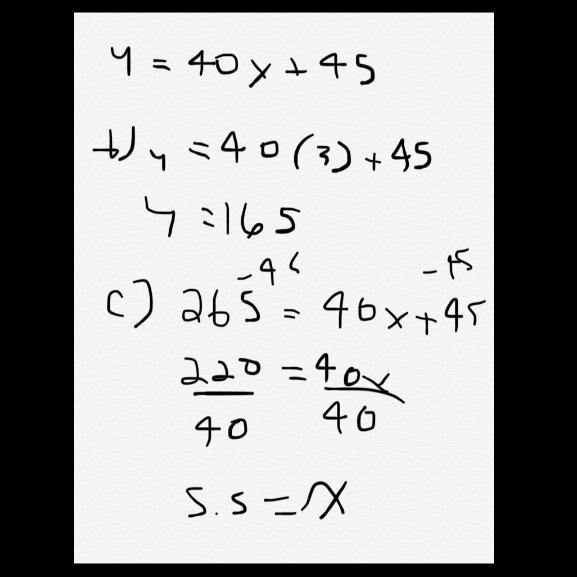 y = 40x + 45
b) y = 40(3) + 45
y = 165
-45 -45
c) 265 = 40x + 45
220 = 40x
40 40
5.5 = x